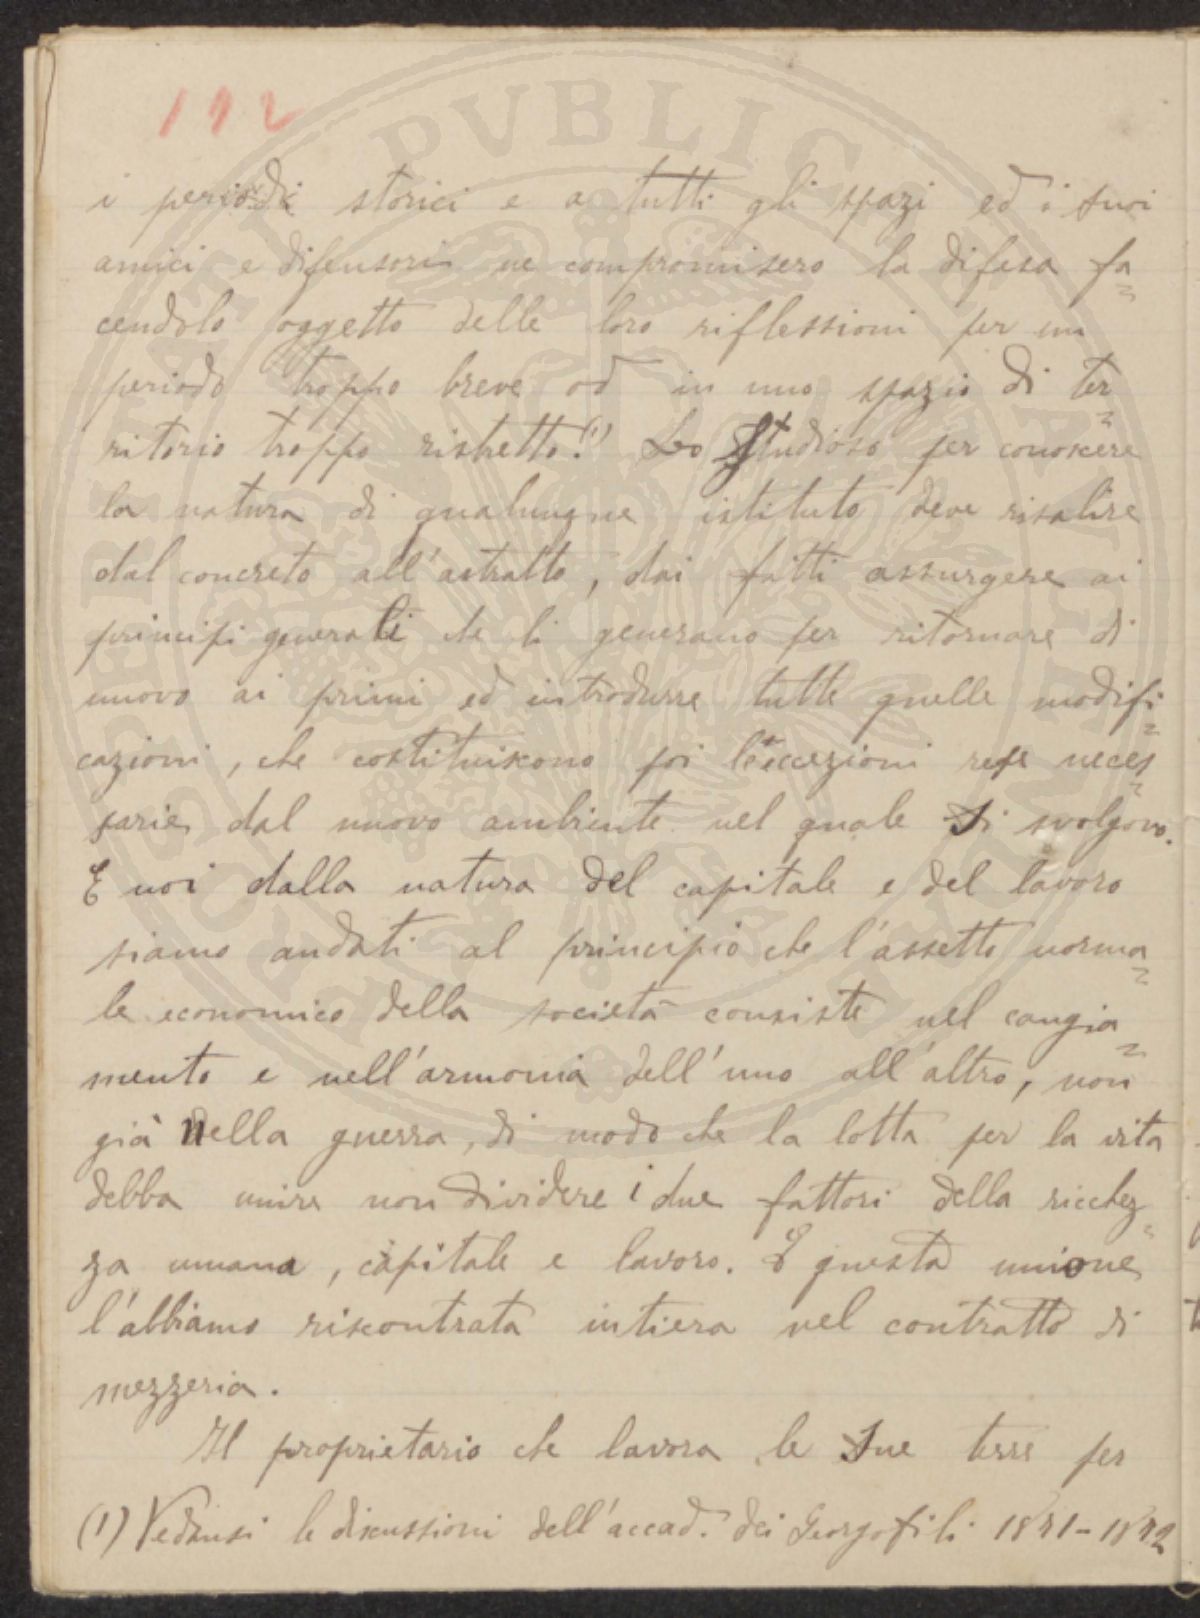 192
i periodi storici e a tutti gli spazi ed i suoi
amici e difensori ne compromisero la difesa fa=
cendolo oggetto delle loro riflessioni per un
periodo troppo breve od in uno spazio di ter=
ritorio troppo ristretto.(1) Lo Studioso per conoscere
la natura di qualunque istituto deve risalire
dal concreto all'astratto, dai fatti assurgere ai
principi generali che li generano per ritornare di
nuovo ai primi ed introdurre tutte quelle modifi=
cazioni, che costituiscono poi l'eccezioni rese neces=
sarie dal nuovo ambiente nel quale Si svolgono.
E noi dalla natura del capitale e del lavoro
siamo andati al principio che l'assetto norma=
le economico della società consiste nel congia=
mento e nell'armonia dell'uno all'altro, non
già nella guerra, di modo che la lotta per la vita
debba unire non dividere i due fattori della ricchez=
za umana, capitale e lavoro. E questa unione
l'abbiamo riscontrata intiera nel contratto di
mezzeria.
Il proprietario che lavora le Sue terre per
(1) Vedansi le discussioni dell'accad. dei Georgofili